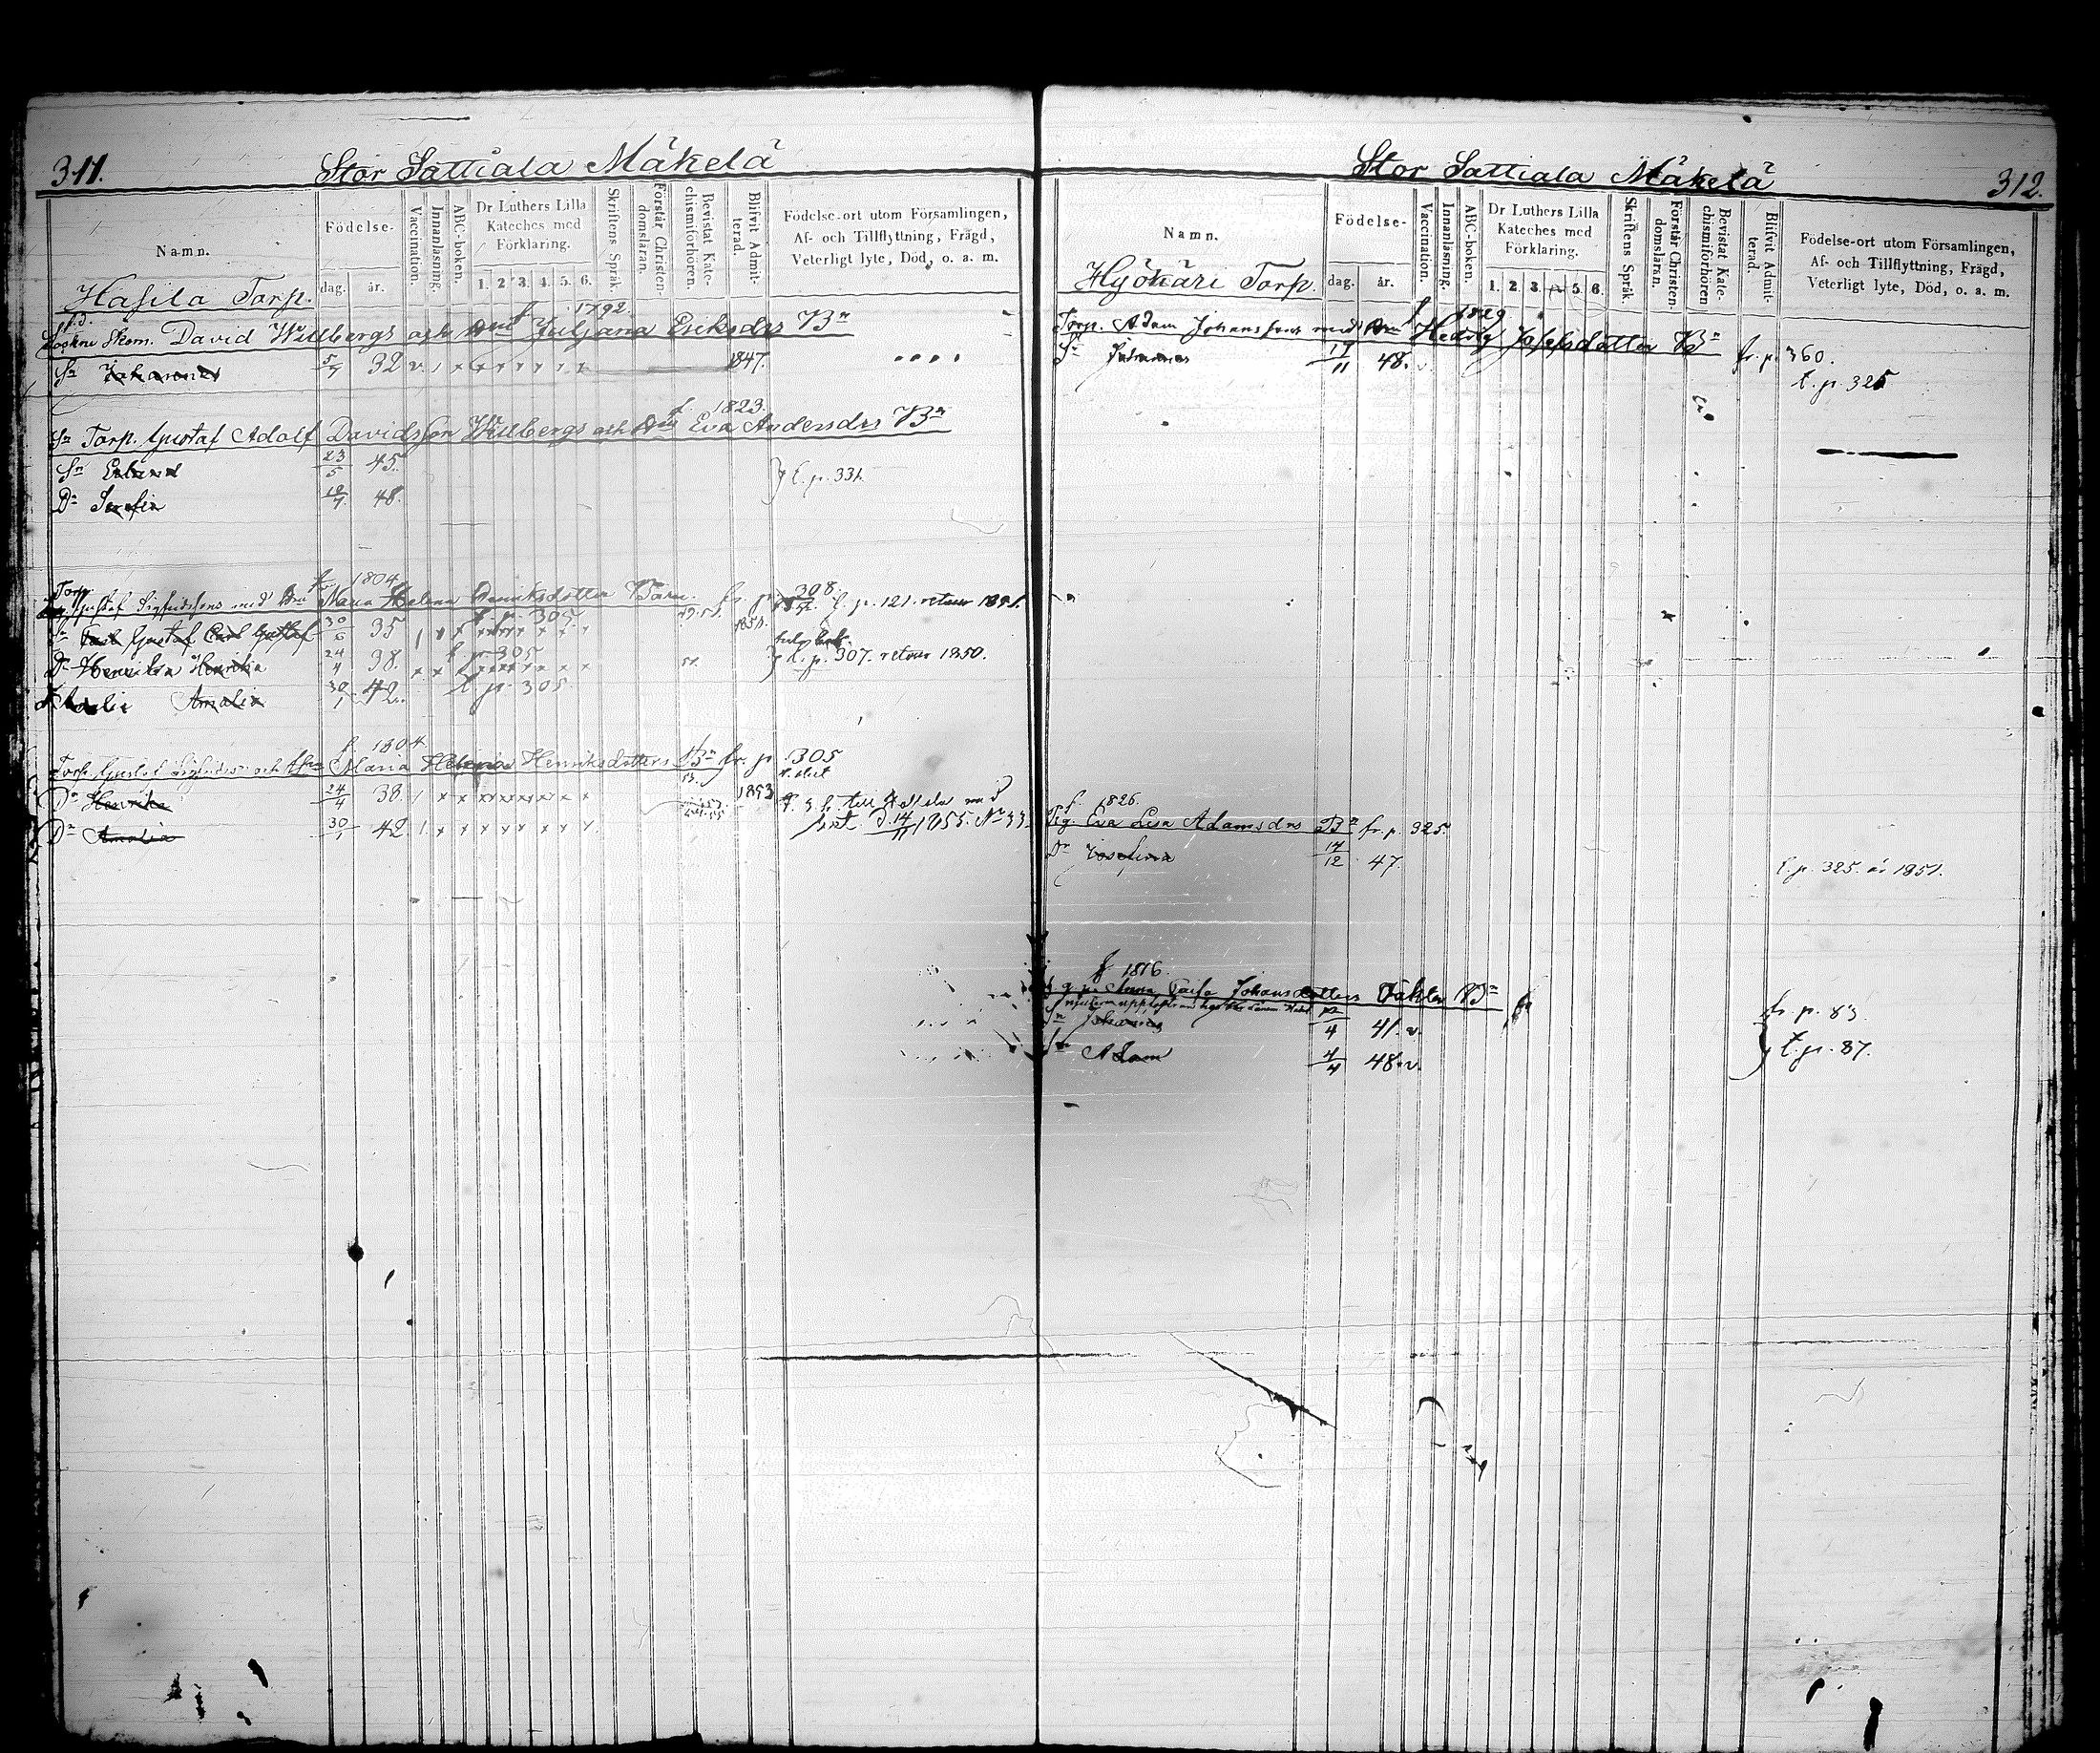 311.
Stor Sattiala Mäkelä
Namn.
Födelse-
dag.
år.
Vaccination.
Innanläsning.
ABC-boken.
Dr Luthers Lilla
Kateches med
Förklaring.
1. 2 3. 4. 5. 6.
Skriftens Språk.
Förstår Christen-
domsläran.
Bevistat Kate-
chismiförhören.
Blifvit Admit-
terad.
Födelse-ort utom Församlingen,
Af- och Tillflyttning, Frägd,
Veterligt lyte, Död, o. a. m.
Hasila Torp.
f. 1792.
Skom. David Willbergs och Juljana Eriksdrs Bn
Sn Johannes 5/7 32 v 1847.
f. 1823.
Sn Torp. Gustaf Adolf Davidsson Willbergs och Eva Andersdrs Bn
Sn Erland 23/5 45.
t. p. 331.
Dr Serafia 48.
f. 1804
Torp. Gustaf Sigfridssons med Maria Helena Henriksdotter Barn. fr. p. 308. t. p. 121. retour 1851.
t. p. 305.
Sn Carl Gustaf 30/6 35 1851.
t. p. 305
Dr Henrika Henrika 24/4 38. t. p. 307. retour 1850.
Amalia 30/1 42. t. p. 305
f. 1804
Torp. Gustaf och Maria Helena Henriksdotters Bn fr. p. 305
Dr Henrika 24/4 38. 1853
Dr Amalia 30/1 42 14/11 1855. No 33.
Stor Sattiala Mäkelä
312.
Namn.
Födelse-
dag.
år.
Vaccination.
Innanläsning.
ABC-boken.
Dr Luthers Lilla
Kateches med
Förklaring.
1. 2. 3. 5. 6.
Skriftens Språk.
Förstår Christen-
domsläran.
Bevistat Kate-
chismiförhören
Blifvit Admit-
terad.
Födelse-ort utom Församlingen,
Af- och Tillflyttning, Frägd,
Veterligt lyte, Död, o. a. m.
Hyökäri Torp.
f. 1829
Torp. Adam Johanssons med Hedvig Josefsdotter Bn
fr. p. 360.
Sn 17/11 48. v.
t. p. 325
f. 1826.
Pig. Eva Lisa Adamsdrs Bn fr. p. 325.
Dr Josefina 14/12 47.
t. p. 325. år 1851.
f 1816.
Anna Caisa Johansdotters Bn
fr. p. 83.
Sn Johannes 41. v.
Sn Adam 4/4 48. v.
t. p. 87.